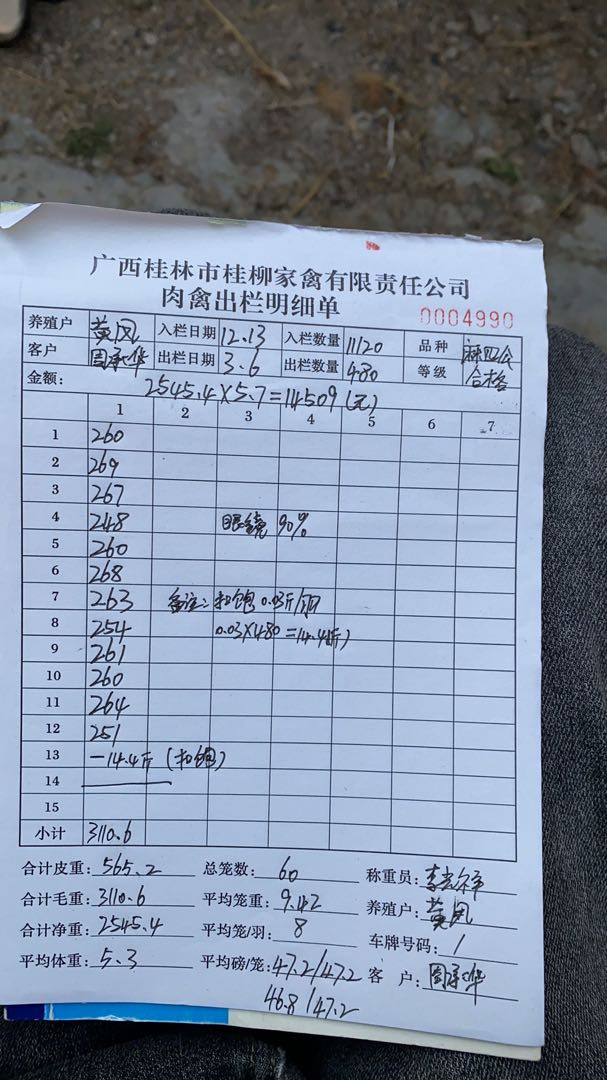 广西桂林市桂柳家禽有限责任公司
肉禽出栏明细单
0004990
养殖户 黄凤 入栏日期 12.13 入栏数量 11120 品种 麻四公
客户 周承华 出栏日期 3.6 出栏数量 480 等级 合格
金额: 2545.4×5.7=14509(元)
1 2 3 4 5 6 7
1 260
2 269
3 267
4 248 眼镜 90%
5 260
6 268
7 263 备注:扣饱0.03斤/羽
8 254 0.03×480=14.4(斤)
9 261
10 260
11 264
12 251
13 -14.4斤(扣饱)
14
15
小计 3110.6
合计皮重: 565.2 总笼数: 60 称重员:
合计毛重: 3110.6 平均笼重: 9.42 养殖户: 黄凤
合计净重: 2545.4 平均笼/羽: 8 车牌号码: /
平均体重: 5.3 平均磅/笼: 47.2/47.2 客户: 周承华
46.8/47.2